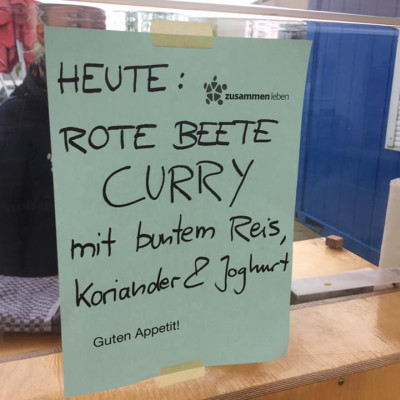 HEUTE:
zusammen leben
ROTE BEETE
CURRY
mit buntem Reis,
Koriander & Joghurt
Guten Appetit!